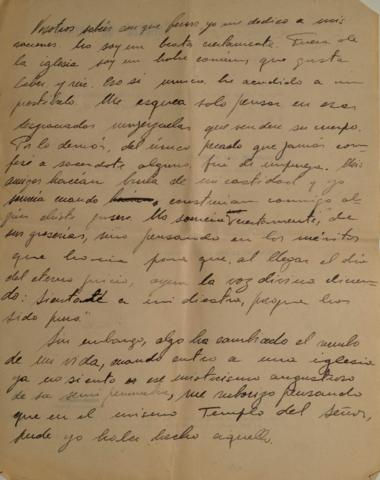 Vosotros sabéis con que fervor yo me dedico a mis
oraciones. No soy un beato ciertamente. Fuera de
la iglesia soy un hombre comun, que gusta
beber y reir. Eso si nunca he acudido a un
prostibulo. Me asquea solo pensar en esas
desgraciadas mujerzuelas que venden su cuerpo.
Por lo demás, del unico pecado que jamás con-
fesé a sacerdote alguno, fué de impureza. Mis
amigos hacían burla de mi castidad y yo
sonreia cuando, construian conmigo al-
gún chiste grosero. No sonreia, ciertamente, de
sus groserías, sino pensando en los méritos
que hacia para que, al llegar el día
del eterno juicio, oyera la voz divina dicien-
do: Sientate a mi diestra, porque has
sido puro."
Sin embargo, algo ha cambiado el rumbo
de mi vida, cuando entro a una iglesia
ya no siento ese misticismo angustioso
de su semi penumbra, me ruborizo pensando
que en el mismo Templo del Señor,
pude yo haber hecho aquello.